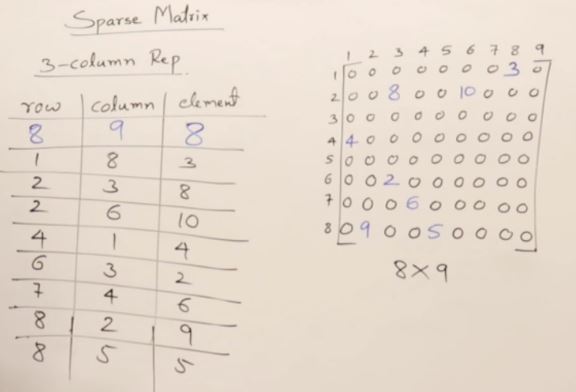 Sparse Matrix
3-column Rep.
row column element
8 9 8
1 8 3
2 3 8
2 6 10
4 1 4
6 3 2
7 4 6
8 2 9
8 5 5
1 2 3 4 5 6 7 8 9
1 0 0 0 0 0 0 0 3 0
2 0 0 8 0 0 10 0 0 0
3 0 0 0 0 0 0 0 0 0
4 4 0 0 0 0 0 0 0 0
5 0 0 0 0 0 0 0 0 0
6 0 0 2 0 0 0 0 0 0
7 0 0 0 6 0 0 0 0 0
8 0 9 0 0 5 0 0 0 0
8×9